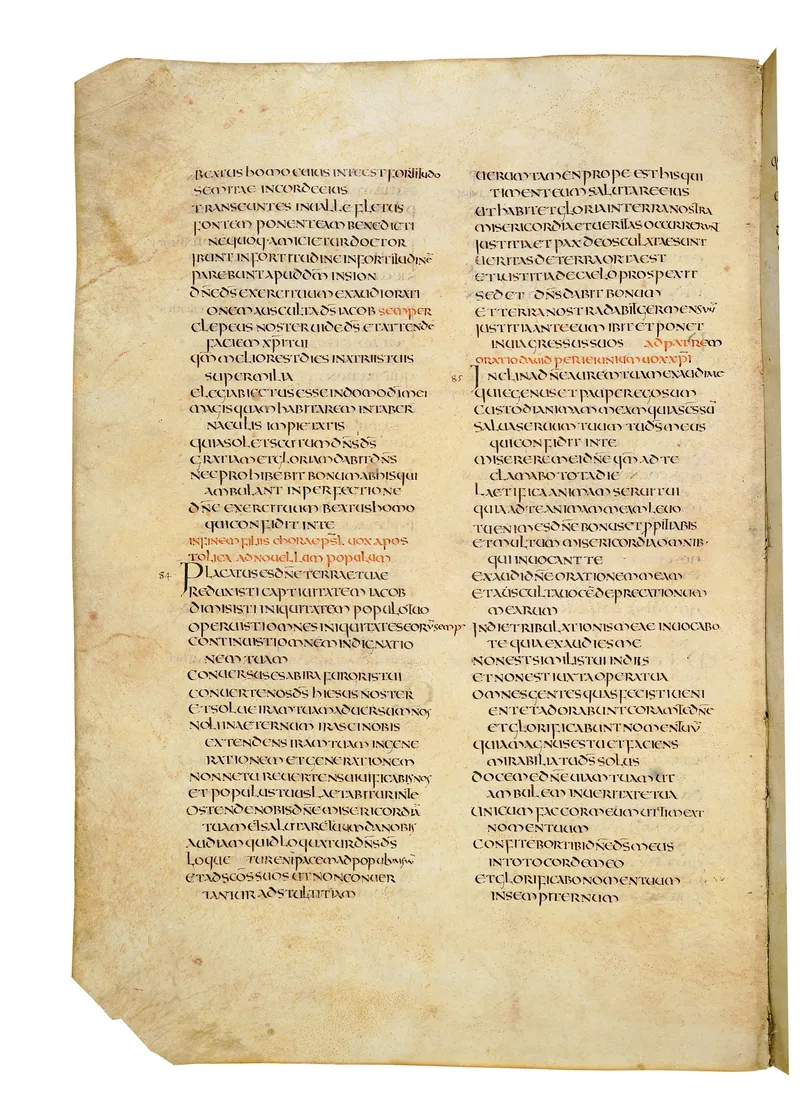 BEATUS HOMO CUIUS INTE EST FORTITUDO
SEMITAE IN CORDE EIUS
TRANSEUNTES IN UALLE FLETUS
FONTEM PONENT EAM BENEDICTI
NEQUOQ· AMICIETUR DOCTOR
IBUNT IN FORTITUDINE IN FORTITUDINĒ
PAREBUNT APUD DM̄ IN SION
DN̄E DS̄ EXERCITUUM EXAUDI ORATI
ONEM AUSCULTA DS̄ IACOB SEMPER
CLEPEUS NOSTER UIDE DS̄ ET ATTENDE
FACIEM XP̄I TUI
QM̄ MELIOR EST DIES IN ATRIIS TUIS
SUPER MILIA
ELEGI ABIECTUS ESSE IN DOMO DĪ MEI
MAGIS QUAM HABITAREM IN TABER
NACULIS IMPIETATIS
QUIA SOL ET SCUTUM DN̄S DS̄
GRATIAM ET GLORIAM DABIT DN̄S
NEC PROHIBEBIT BONUM AB HIS QUI
AMBULANT IN PERFECTIONE
DN̄E EXERCITUUM BEATUS HOMO
QUI CONFIDIT IN TE
IN FINEM FILIIS CHORAE PSL̄ UOX APOS
TOLICA AD NOUELLUM POPULUM
84 PLACATUS ES DN̄E TERRAE TUAE
REDUXISTI CAPTIUITATEM IACOB
DIMISISTI INIQUITATEM POPULO TUO
OPERUISTI OMNES INIQUITATES EORŪ SEMP·
CONTINUISTI OMNEM INDIGNATIO
NEM TUAM
CONUERSUS ES AB IRA FURORIS TUI
CONUERTE NOS DS̄ HIESUS NOSTER
ET SOLUE IRAM TUAM ADUERSUM NOS
NOLI IN AETERNUM IRASCI NOBIS
EXTENDENS IRAM TUAM IN GENE
RATIONEM ET GENERATIONEM
NONNE TU REUERTENS UIUIFICABIS NOS
ET POPULUS TUUS LAETABITUR IN TE
OSTENDE NOBIS DN̄E MISERICORDIĀ
TUAM ET SALUTARE TUUM DA NOBIS
AUDIAM QUID LOQUATUR DN̄S DS̄
LOQUETUR ENĪ PACEM AD POPULUM SUŪ
ET AD SC̄OS SUOS UT NON CONUER
TANTUR AD STULTITIAM
UERUMTAMEN PROPE EST HIS QUI
TIMENT EUM SALUTARE EIUS
UT HABITET GLORIA IN TERRA NOSTRA
MISERICORDIA ET UERITAS OCCURRERUNT
IUSTITIA ET PAX DEOSCULATAE SUNT
UERITAS DE TERRA ORTA EST
ET IUSTITIA DE CAELO PROSPEXIT
SED ET DN̄S DABIT BONUM
ET TERRA NOSTRA DABIT GERMEN SUŪ
IUSTITIA ANTE EUM IBIT ET PONET
IN UIA GRESSUS SUOS AD PATREM
ORATIO DAUID PER IEIUNIUM UOX XP̄I
85 INCLINA DN̄E AUREM TUAM EXAUDI ME
QUI EGENUS ET PAUPER EGO SUM
CUSTODI ANIMAM MEAM QUIA SC̄S SŪ
SALUA SERUUM TUUM TU DS̄ MEUS
QUI CONFIDIT IN TE
MISERERE MEI DN̄E QM̄ AD TE
CLAMABO TOTA DIE
LAETIFICA ANIMAM SERUI TUI
QUIA AD TE ANIMAM MEAM LEUO
TU ENIM ES DN̄E BONUS ET PPITIABIS
ET MULTUM MISERICORDIA OMNIB·
QUI INUOCANT TE
EXAUDI DN̄E ORATIONEM MEAM
ET AUSCULTA UOCĒ DEPRECATIONUM
MEARUM
IN DIE TRIBULATIONIS MEAE INUOCABO
TE QUIA EXAUDIES ME
NON EST SIMILIS TUI IN DIIS
ET NON EST IUXTA OPERA TUA
OMNES GENTES QUAS FECISTI UENI
ENT ET ADORABUNT CORAM TE DN̄E
ET GLORIFICABUNT NOMEN TUŪ
QUIA MAGNUS ES TU ET FACIENS
MIRABILIA TU DS̄ SOLUS
DOCE ME DN̄E UIAM TUAM UT
AMBULEM IN UERITATE TUA
UNICUM FAC COR MEUM UT TIMEAT
NOMEN TUUM
CONFITEBOR TIBI DN̄E DS̄ MEUS
IN TOTO CORDE MEO
ET GLORIFICABO NOMEN TUUM
IN SEMPITERNUM